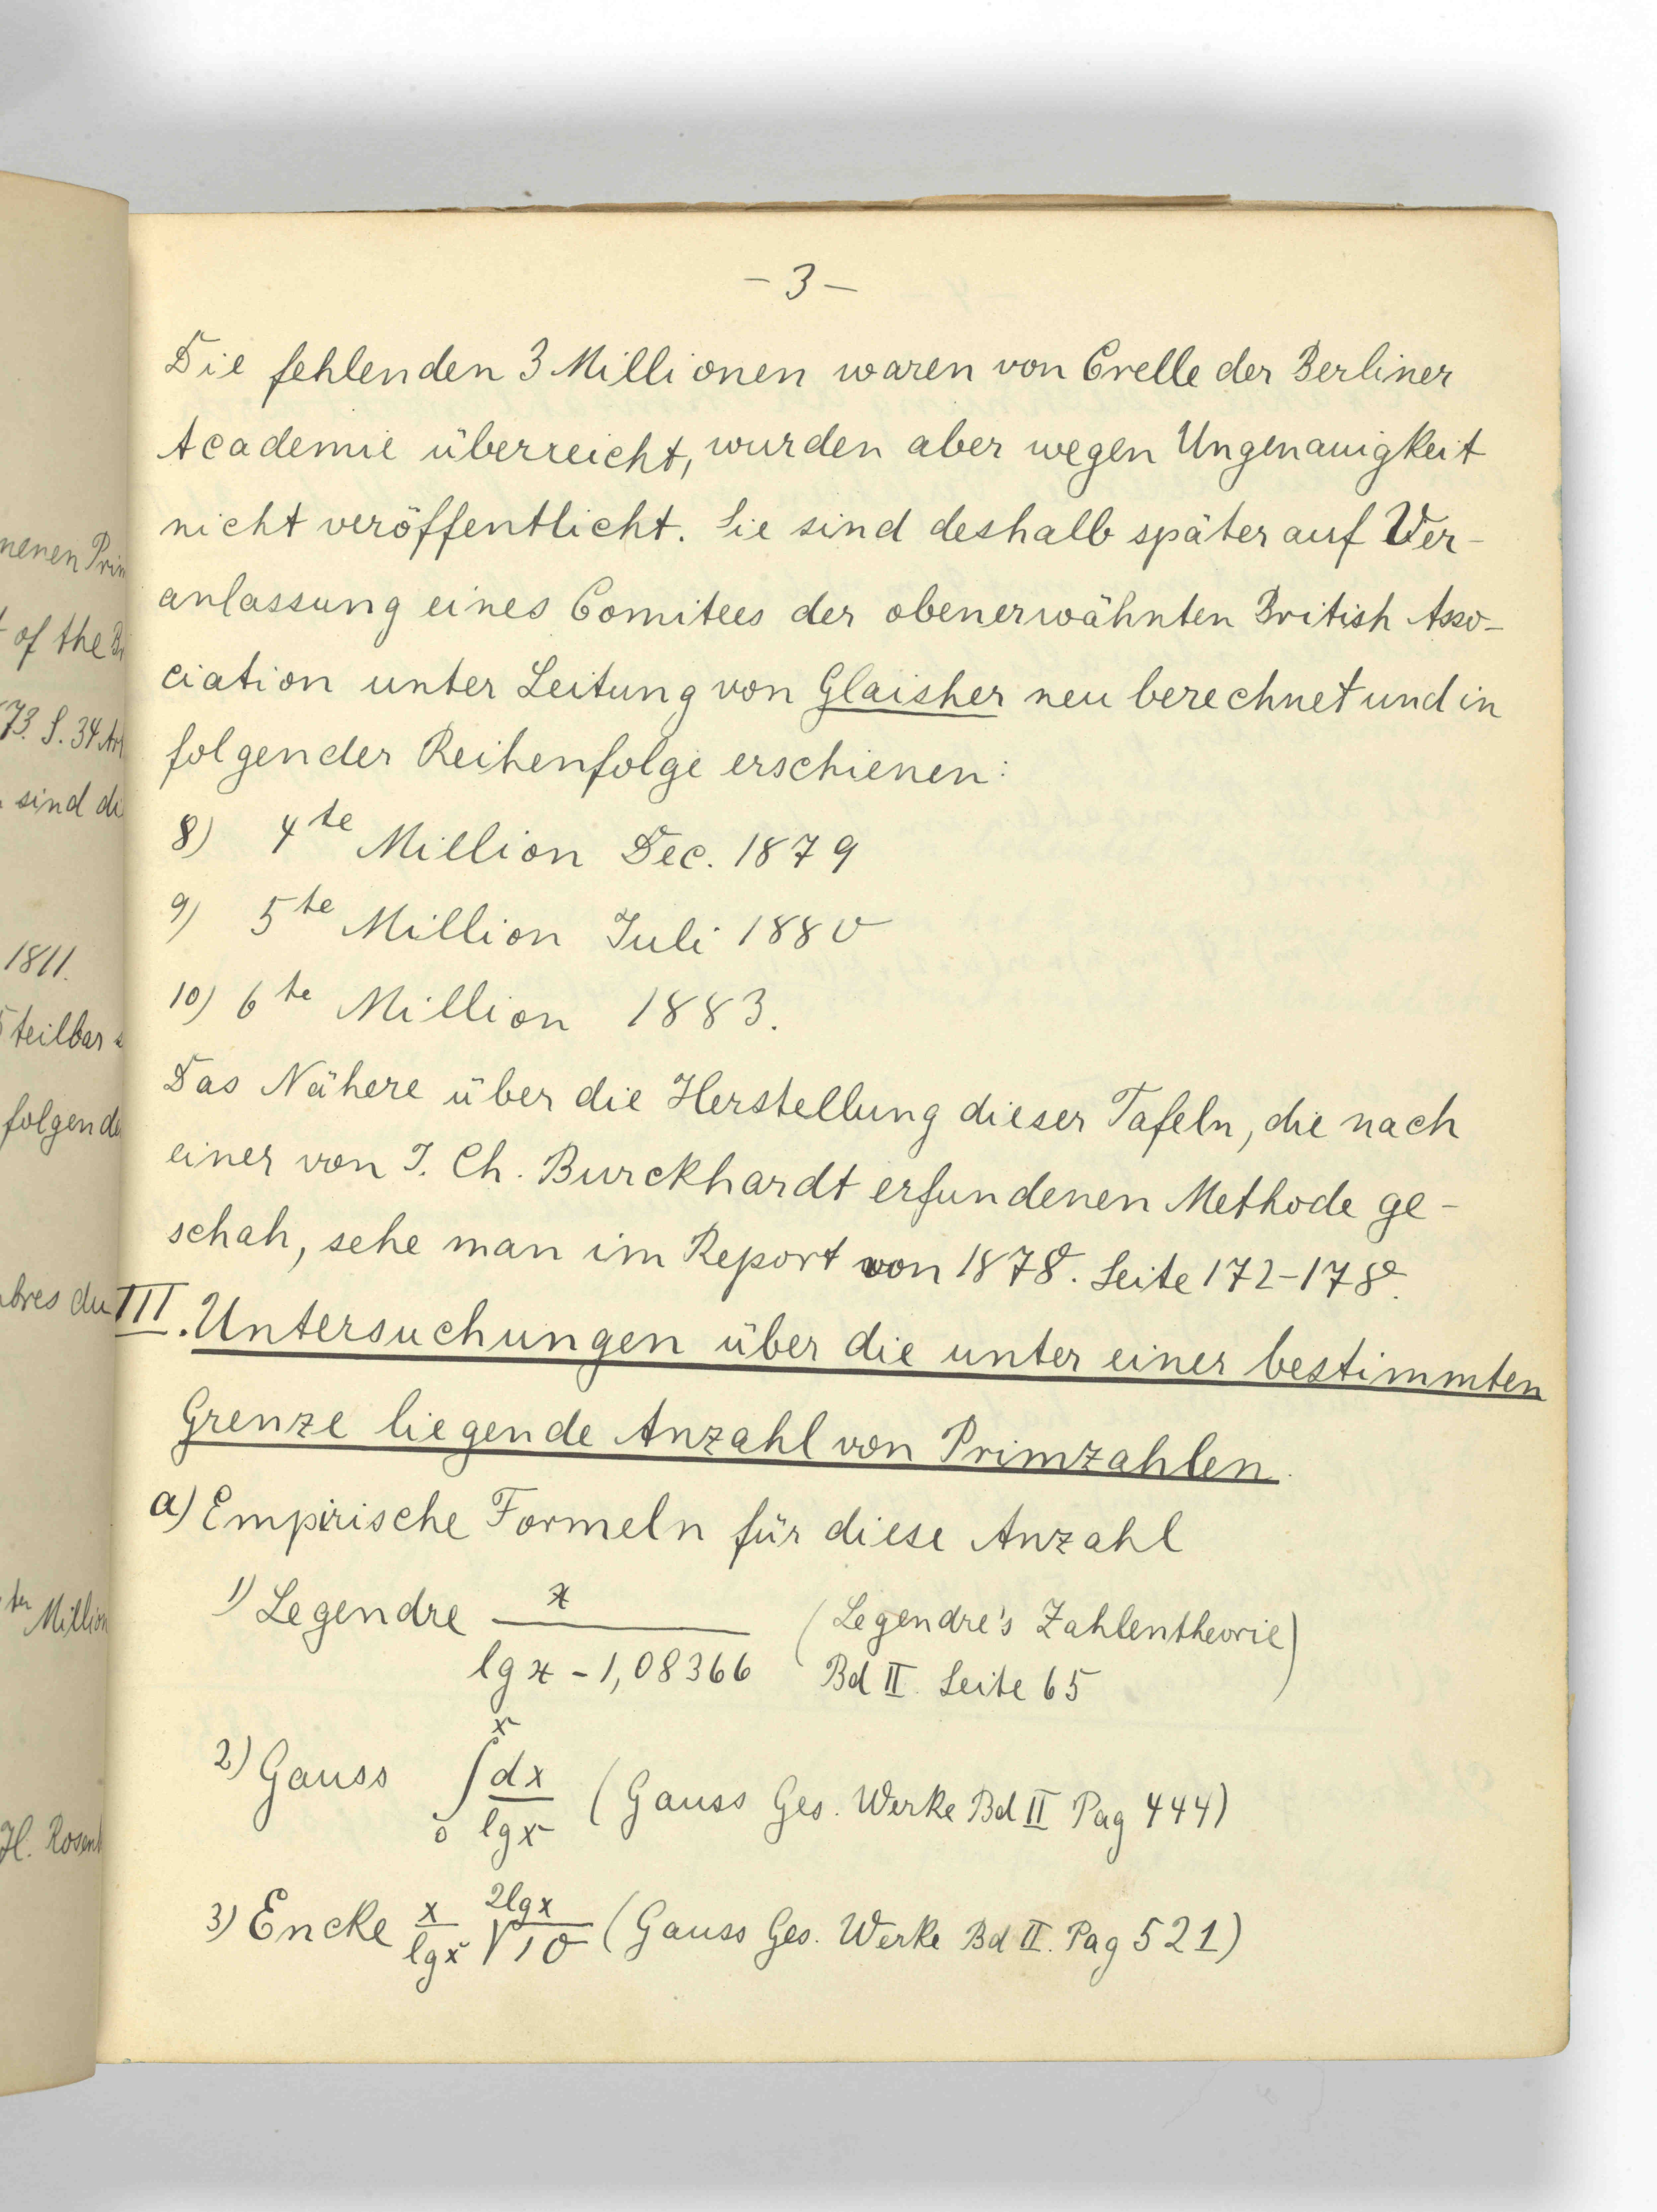 - 3 -
Die fehlenden 3 Millionen waren von Crelle der Berliner
Academie überreicht, wurden aber wegen Ungenauigkeit
nicht veröffentlicht. Sie sind deshalb später auf Ver-
anlassung eines Comitees der obenerwähnten British Asso-
ciation unter Leitung von Glaisher neu berechnet und in
folgender Reihenfolge erschienen:
8) 4te Million Dec. 1879
9) 5te Million Juli 1880
10) 6te Million 1883.
Das Nähere über die Herstellung dieser Tafeln, die nach
einer von J. Ch. Burckhardt erfundenen Methode ge-
schah, sehe man im Report von 1878. Seite 172-178.
III. Untersuchungen über die unter einer bestimmten
Grenze liegende Anzahl von Primzahlen.
a) Empirische Formeln für diese Anzahl
1) Legendre x / (lg x - 1,08366) (Legendre's Zahlentheorie
Bd II. Seite 65)
2) Gauss ∫₀ˣ dx / lg x (Gauss Ges. Werke Bd II Pag 444)
3) Encke x / lg x 2lgx√10 (Gauss Ges. Werke Bd II. Pag 521)
of the
73. S. 34
sind
1811.
teilbar
folgende
du
ter Million
H.